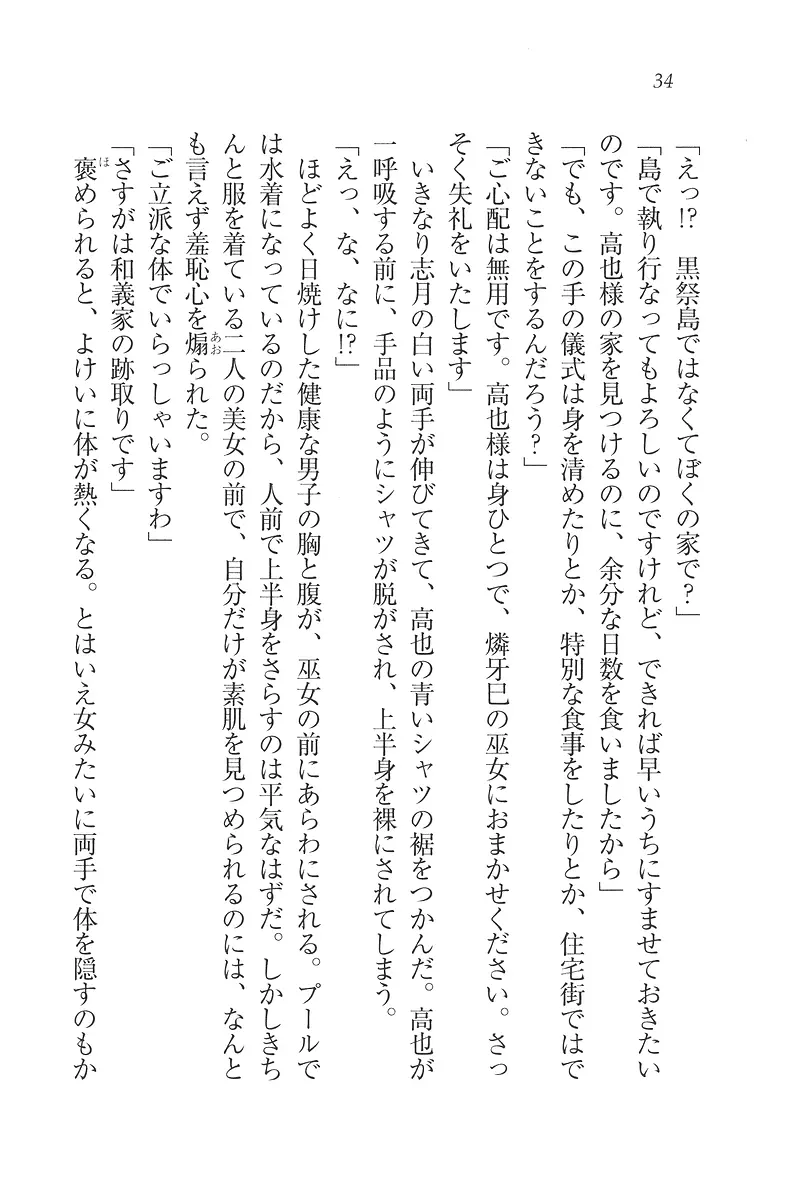 34
「えっ!?　黒祭島ではなくてぼくの家で？」
「島で執り行なってもよろしいのですけれど、できれば早いうちにすませておきたい
のです。高也様の家を見つけるのに、余分な日数を食いましたから」
「でも、この手の儀式は身を清めたりとか、特別な食事をしたりとか、住宅街ではで
きないことをするんだろう？」
「ご心配は無用です。高也様は身ひとつで、燐牙巳の巫女におまかせください。さっ
そく失礼をいたします」
　いきなり志月の白い両手が伸びてきて、高也の青いシャツの裾をつかんだ。高也が
一呼吸する前に、手品のようにシャツが脱がされ、上半身を裸にされてしまう。
「えっ、な、なに!?」
　ほどよく日焼けした健康な男子の胸と腹が、巫女の前にあらわにされる。プールで
は水着になっているのだから、人前で上半身をさらすのは平気なはずだ。しかしきち
んと服を着ている二人の美女の前で、自分だけが素肌を見つめられるのには、なんと
も言えず羞恥心を煽あおられた。
「ご立派な体でいらっしゃいますわ」
「さすがは和義家の跡取りです」
　褒ほめられると、よけいに体が熱くなる。とはいえ女みたいに両手で体を隠すのもか